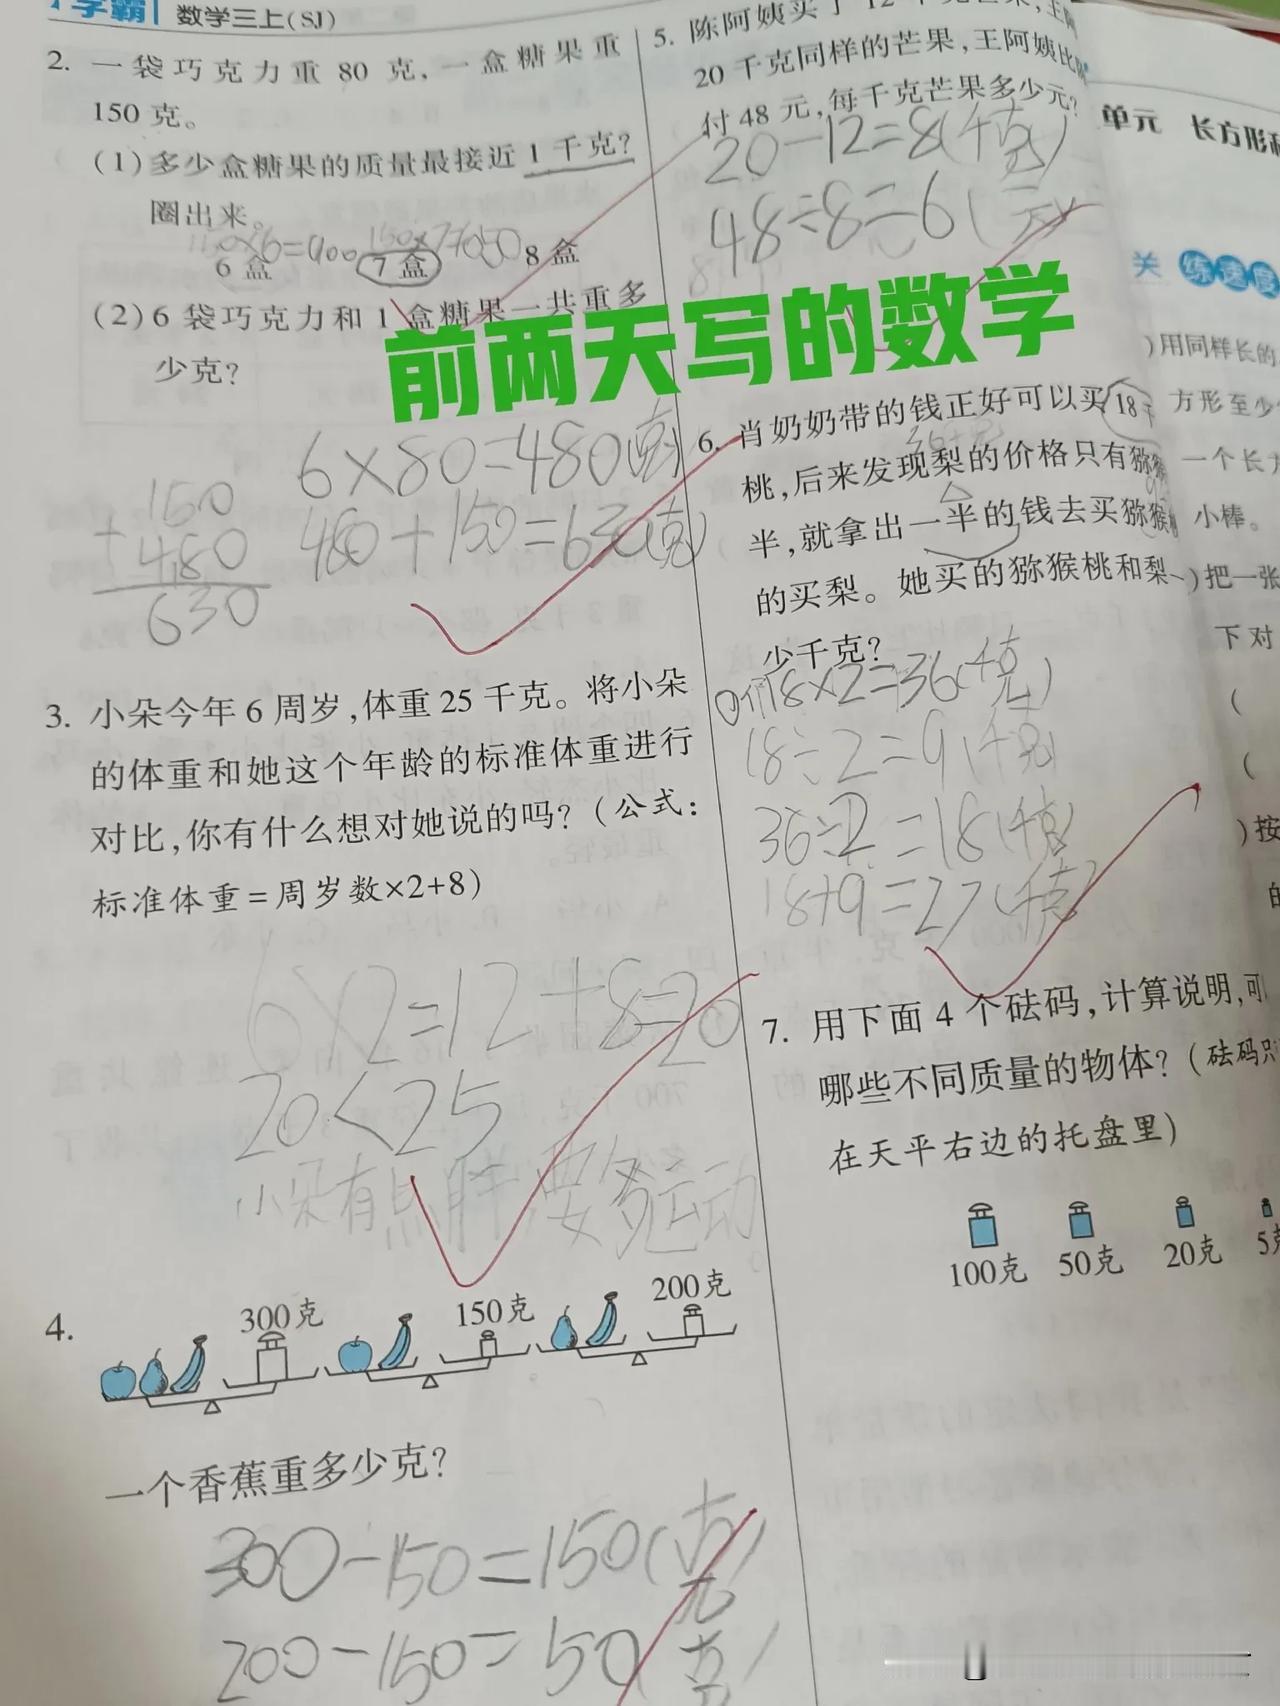 学霸 数学三上(SJ)
2. 一袋巧克力重 80 克,一盒糖果重
150 克。
(1)多少盒糖果的质量最接近 1 千克?
圈出来。
150×6=900 150×7=1050
6 盒 7 盒 8 盒
(2)6 袋巧克力和 1 盒糖果一共重多
少克?
6×80=480(克)
480+150=630(克)
150
+480
630
3. 小朵今年 6 周岁,体重 25 千克。将小朵
的体重和她这个年龄的标准体重进行
对比,你有什么想对她说的吗?(公式:
标准体重=周岁数×2+8)
6×2=12+8=20
20<25
小朵有点胖,要多运动。
4.
300克 150克 200克
一个香蕉重多少克?
300-150=150(克)
200-150=50(克)
5. 陈阿姨买了 12 千克芒果,王阿
20 千克同样的芒果,王阿姨比陈
付 48 元,每千克芒果多少元?
20-12=8(千克)
48÷8=6(元)
前两天写的数学
6. 肖奶奶带的钱正好可以买 18 千
桃,后来发现梨的价格只有猕猴
半,就拿出一半的钱去买猕猴桃
的买梨。她买的猕猴桃和梨
少千克?
18×2=36(千克)
18÷2=9(千克)
36÷2=18(千克)
18+9=27(千克)
7. 用下面 4 个砝码,计算说明,可
哪些不同质量的物体?(砝码只
在天平右边的托盘里)
100克 50克 20克 5克
单元 长方形和
关 练速度
)用同样长的
方形至少
一个长方
小棒。
)把一张
下对
(
(
)按
的